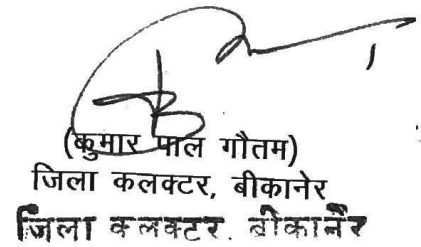 (कुमार पाल गौतम)
जिला कलक्टर, बीकानेर
जिला कलक्टर. बीकानेर